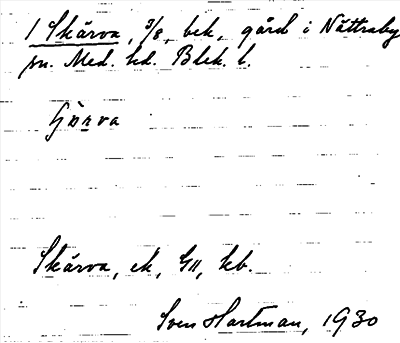 1 Skärva, 3/8, bek, gård i Nättraby
sn. Med. hd. Blek. l.
Skärva, ek, GII, kb.
Sven Hartman, 1930